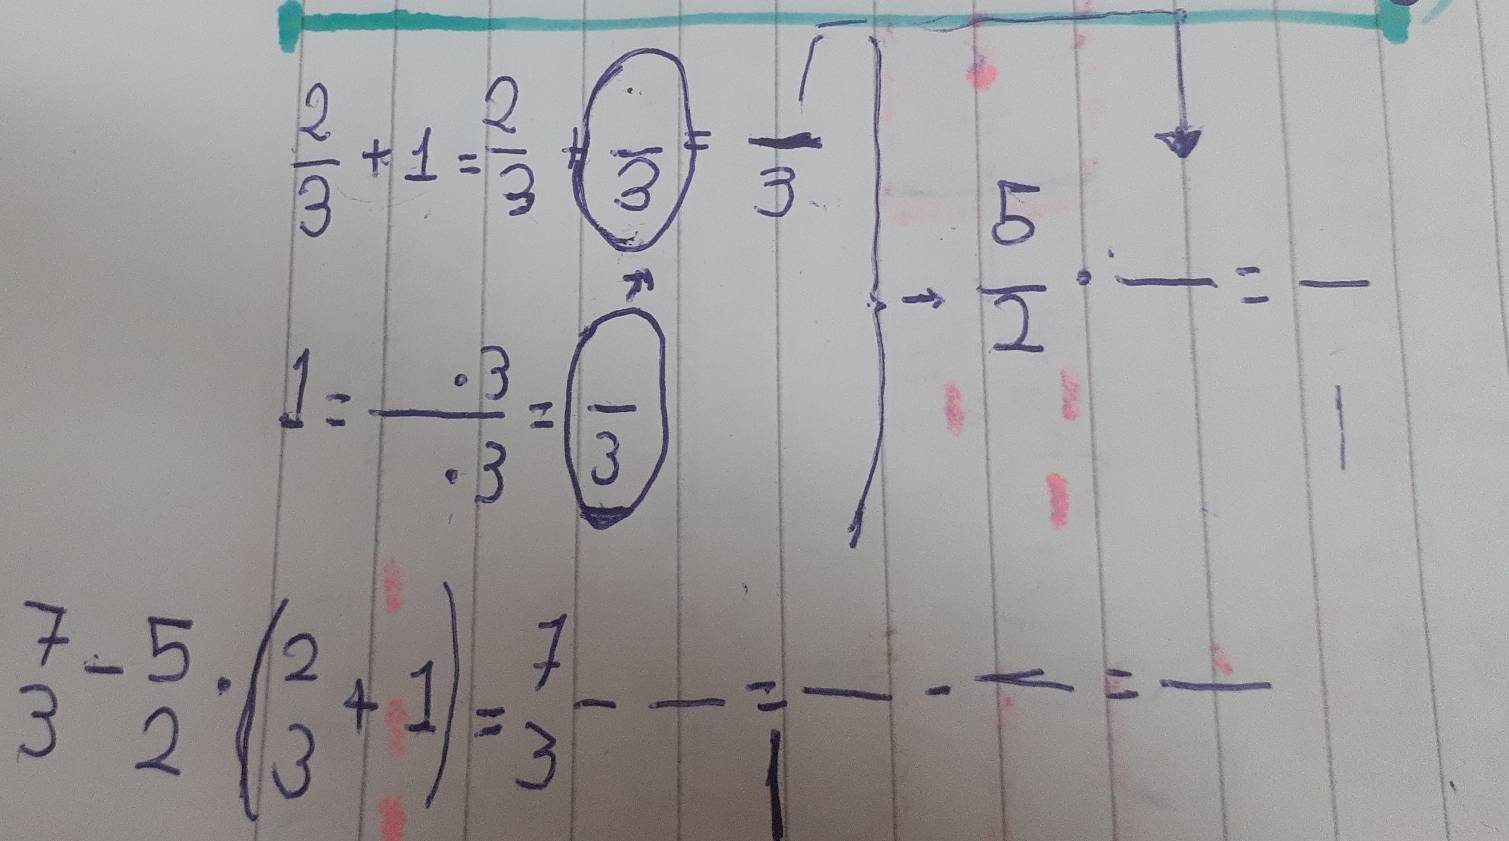 2/3 + 1 = 2/3 + /3 = /3
→ 5/2 · — = —
1 = ·3/·3 = /3
7/3 - 5/2 · (2/3 + 1) = 7/3 - — = — - — = —